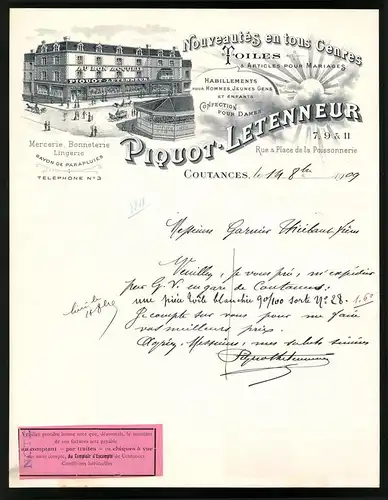 Nouveautés en tous Genres
TOILES
& ARTICLES POUR MARIAGES
AU BON ACCUEIL
PIQUOT-LETENNEUR
HABILLEMENTS
POUR HOMMES, JEUNES GENS
ET ENFANTS
CONFECTION
POUR DAMES
PIQUOT-LETENNEUR
7, 9 & 11
Rue & Place de la Poissonnerie
Mercerie, Bonneterie
Lingerie
RAYON DE PARAPLUIES
TÉLÉPHONE Nº 3
COUTANCES, le 14 8bre 1909
Messieurs Garnier Thiébaut frères
Veuillez, je vous prie, m'expédier
par G. V. en gare de Coutances:
une pièce toile blanchie 90/100 sorte Nº 28. 1.60
Je compte sur vous pour me faire
vos meilleurs prix.
Agréez, Messieurs, mes saluts sincères
Piquot Letenneur
Veuillez prendre bonne note que, désormais, le montant
de vos factures sera payable
au comptant — par traites — ou chèques à vue
sur mon compte, au Comptoir d'Escompte de Coutances
Conditions habituelles